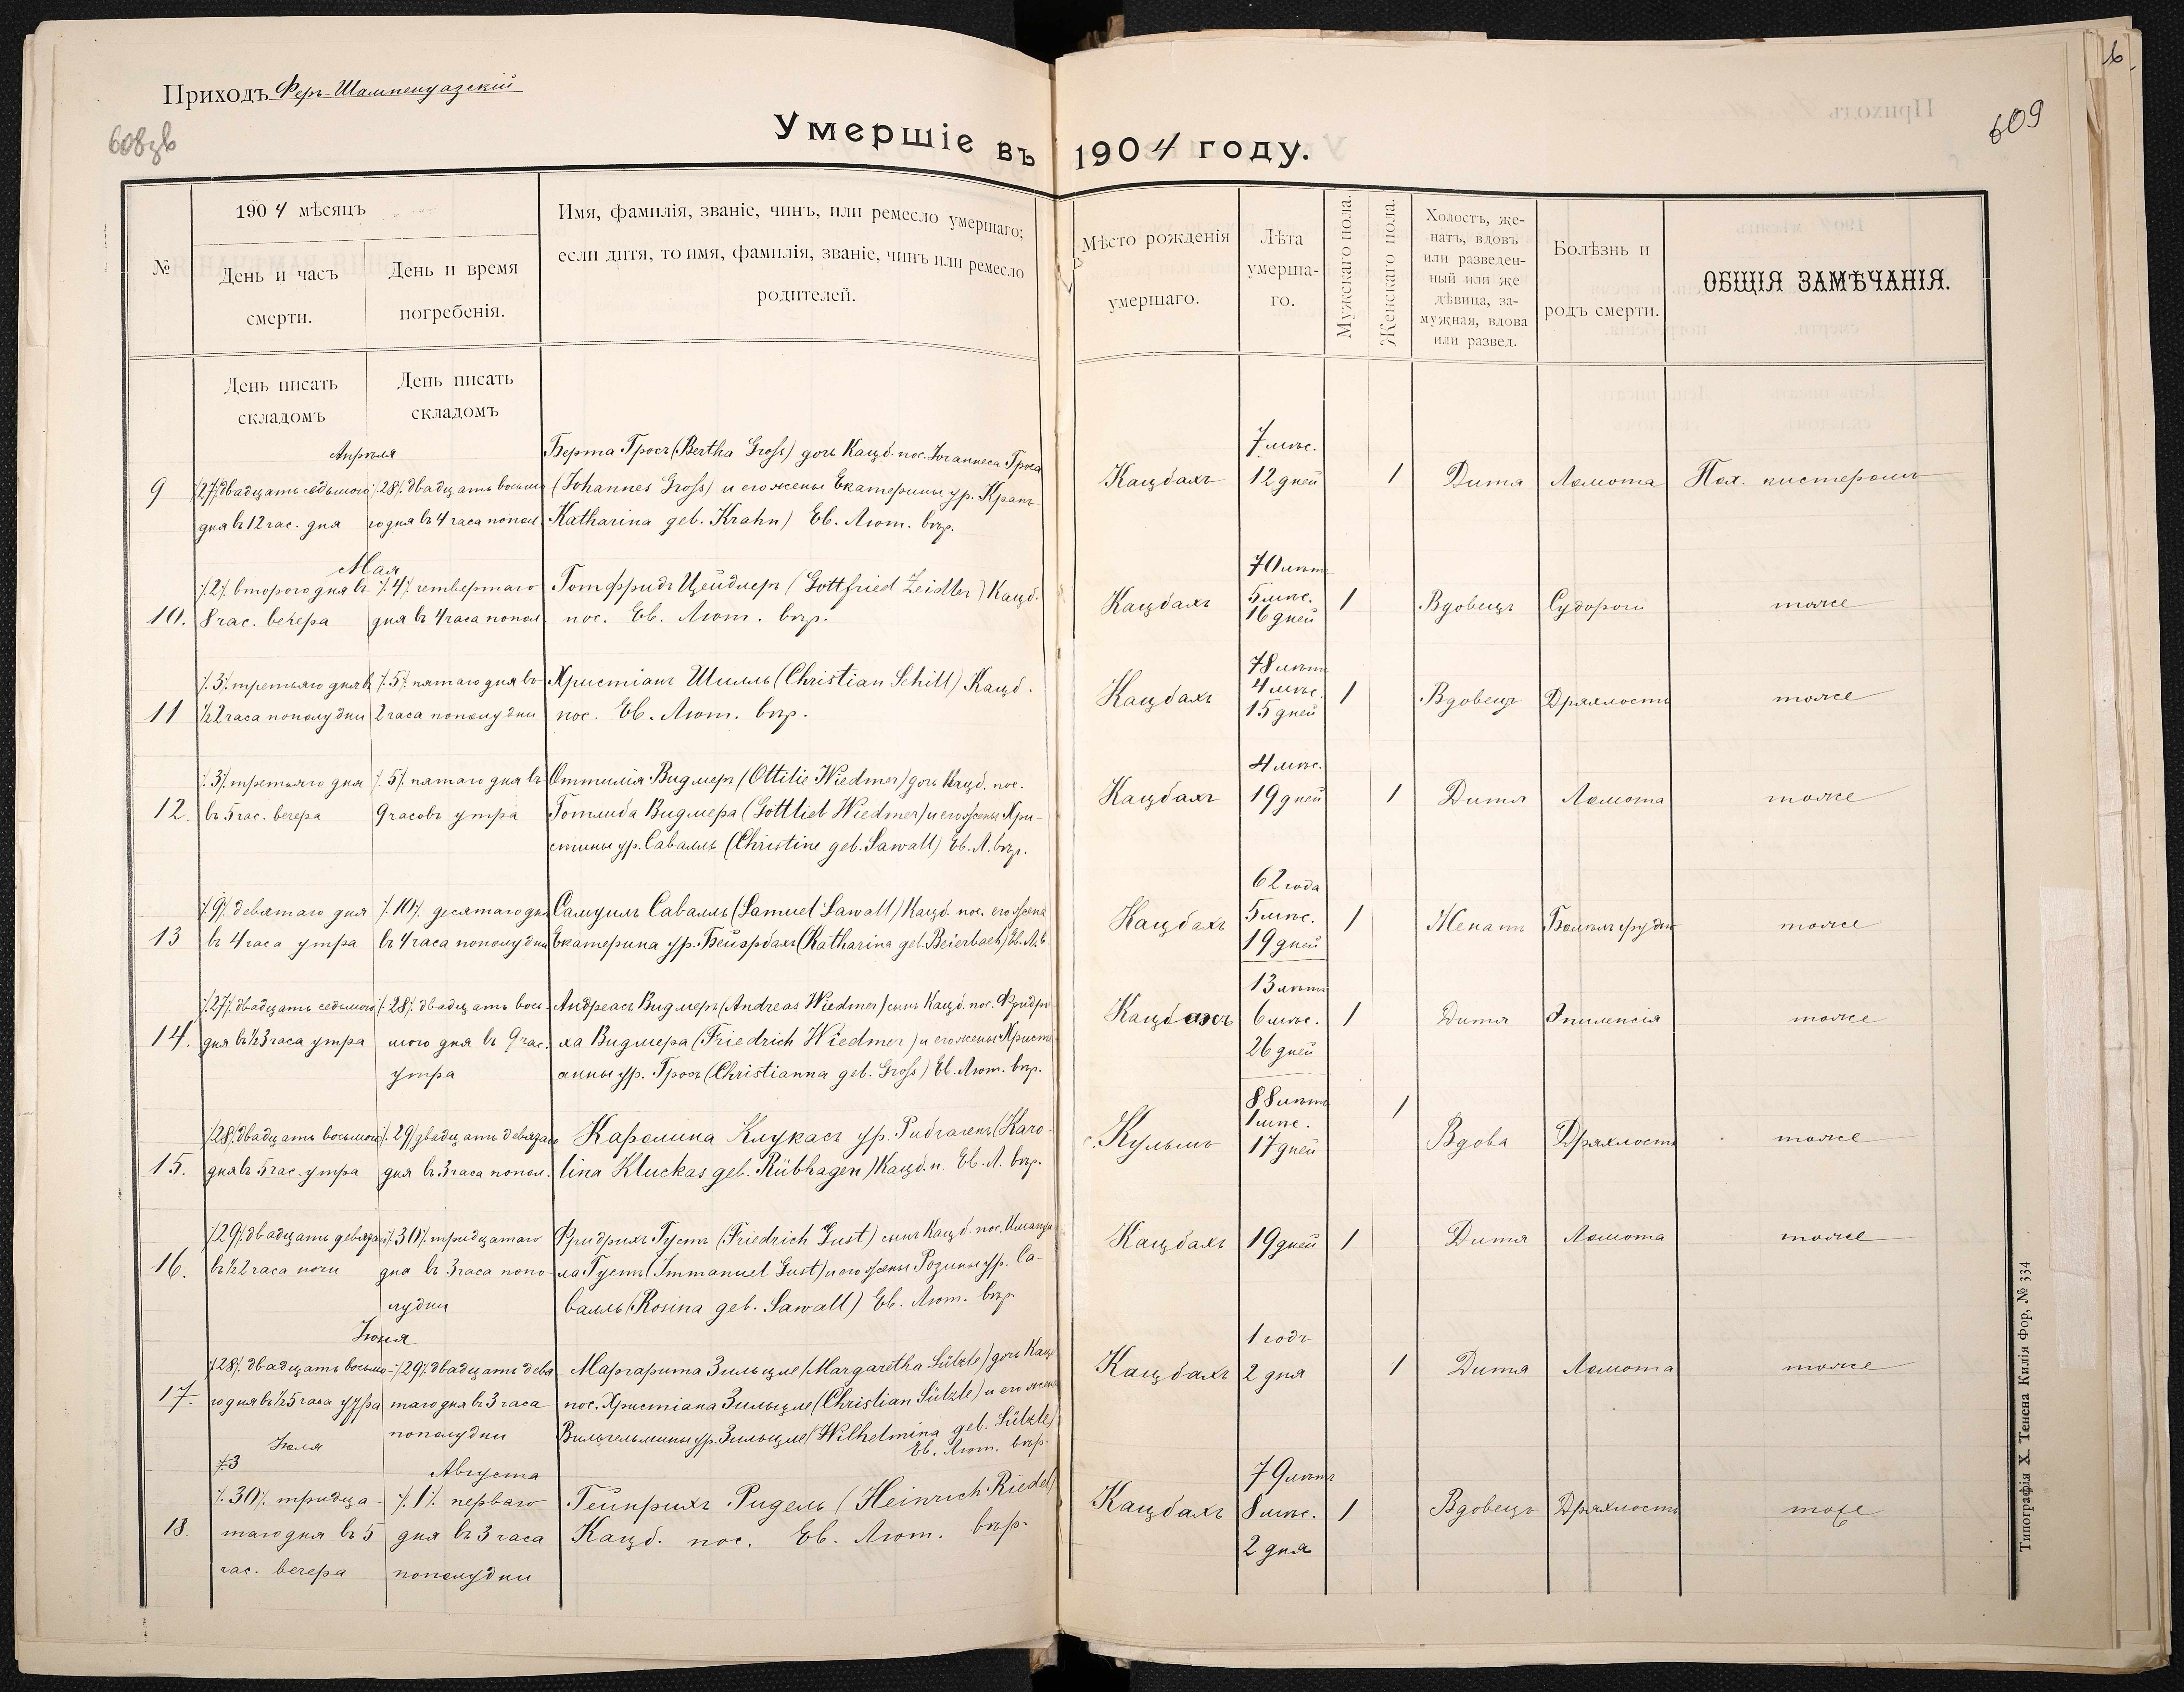 Приходъ Феръ-Шампенуазскій
608зв
609
6
Умершіе въ 1904 году.
№
1904 мѣсяцъ
День и часъ смерти.
День и время погребенія.
Имя, фамилія, званіе, чинъ, или ремесло умершаго;
если дитя, то имя, фамилія, званіе, чинъ или ремесло
родителей.
Мѣсто рожденія
умершаго.
Лѣта
умерша-
го.
Мужскаго пола.
Женскаго пола.
Холостъ, же-
натъ, вдовъ
или разведен-
ный или же
дѣвица, за-
мужная, вдова
или развед.
Болѣзнь и
родъ смерти.
ОБЩІЯ ЗАМѢЧАНІЯ.
День писать
складомъ
День писать
складомъ
Апрѣля
9
/27/ двадцать седьмого
дня въ 12 час. дня
/28/ двадцать восьма
годня въ 4 часа попол
Берта Гросъ (Bertha Groß) дочь Кацб. пос. Іоганнеса Гроса
(Johannes Groß) и его жены Екатерины ур. Кранъ
Katharina geb. Krahn) Ев. Лют. вѣр.
Кацбахъ
7 мѣс.
12 дней
1
Дитя
Ломота
Пох. кистеромъ
Мая
10.
/2/ второго дня въ
8 час. вечера
/4/ четвертаго
дня въ 4 часа попол.
Готфридъ Цейдлеръ (Gottfried Zeidler) Кацб.
пос. Ев. Лют. вѣр.
Кацбахъ
70 лѣтъ
5 мѣс.
16 дней
1
Вдовецъ
Судороги
тоже
11
/3/ третьяго дня въ
½2 часа пополудни
/5/ пятаго дня въ
2 часа пополудни
Христіанъ Шилль (Christian Schill) Кацб.
пос. Ев. Лют. вѣр.
Кацбахъ
78 лѣтъ
4 мѣс.
15 дней
1
Вдовецъ
Дряхлость
тоже
12.
/3/ третьяго дня
въ 5 час. вечера
/5/ пятаго дня въ
9 часовъ утра
Оттилія Видмеръ (Ottilie Wiedmer) дочь Кацб. пос.
Готлиба Видмера (Gottlieb Wiedmer) и его жены Хри-
стины ур. Саваллъ (Christine geb. Sawall) Ев. Л. вѣр.
Кацбахъ
4 мѣс.
19 дней
1
Дитя
Ломота
тоже
13
/9/ девятаго дня
въ 4 часа утра
/10/ десятаго дня
въ 4 часа пополудни
Самуилъ Саваллъ (Samuel Sawall) Кацб. пос. его жена
Екатерина ур. Бейэрбахъ (Katharina geb. Beierbach) Ев. Л. в.
Кацбахъ
62 года
5 мѣс.
19 дней
1
Женатъ
тоже
14.
/27/ двадцать седьмого
дня въ ½3 часа утра
/28/ двадцать вось-
мого дня въ 9 час.
утра
Андреасъ Видмеръ (Andreas Wiedmer) сынъ Кацб. пос. Фридри
ха Видмера (Friedrich Wiedmer) и его жены Христі
анны ур. Гросъ (Christianna geb. Groß) Ев. Лют. вѣр.
Кацбахъ
13 лѣтъ
6 мѣс.
26 дней
1
Дитя
Эпилепсія
тоже
15.
/28/ двадцать восьмого
дня въ 5 час. утра
/29/ двадцать девятаго
дня въ 3 часа попол.
Каролина Клукасъ ур. Рибгагенъ (Karo-
lina Kluckas geb. Rübhagen) Кацб. п. Ев. Л. вѣр.
Кульмъ
88 лѣтъ
1 мѣс.
17 дней
1
Вдова
Дряхлость
тоже
16.
/29/ двадцать девятаго
въ ½2 часа ночи
/30/ тридцатаго
дня въ 3 часа попо-
лудни
Фридрихъ Густъ (Friedrich Gust) сынъ Кацб. пос. Имануи
ла Густъ (Immanuel Gust) и его жены Розины ур. Са-
валль (Rosina geb. Sawall) Ев. Лют. вѣр.
Кацбахъ
19 дней
1
Дитя
Ломота
тоже
Іюня
17.
/28/ двадцать восьмо-
го дня въ ½5 часа утра
/29/ двадцать девя
таго дня въ 3 часа
пополудни
Маргарита Зильцле (Margaretha Sülzle) дочь Кацб
пос. Христіана Зильцле (Christian Sülzle) и его жены
Вильгельмины ур. Зильцле (Wilhelmina geb. Sülzle)
Ев. Лют. вѣр.
Кацбахъ
1 годъ
2 дня
1
Дитя
Ломота
тоже
Іюля
/3
Августа
18.
/30/ тридца-
таго дня въ 5
час. вечера
/1/ перваго
дня въ 3 часа
пополудни
Гейнрихъ Ридель (Heinrich Riedel)
Кацб. пос. Ев. Лют. вѣр.
Кацбахъ
79 лѣтъ
8 мѣс.
2 дня
1
Вдовецъ
Дряхлость
тоже
Типографія Х. Тенена Килія Фор, № 334